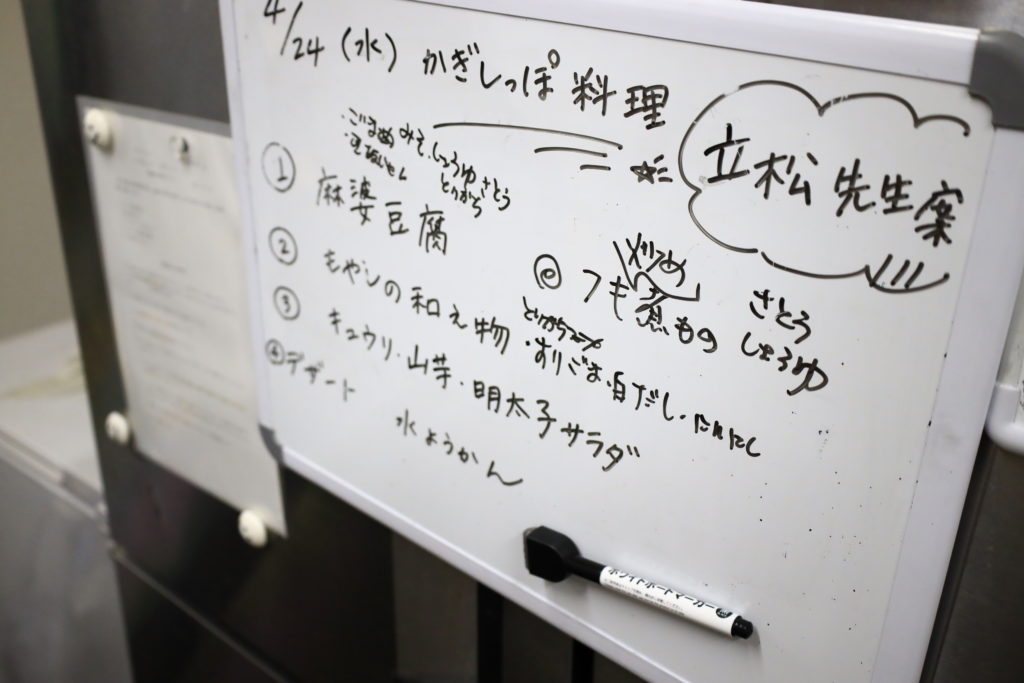 4/24 (水) かぎしっぽ料理
立松先生案
・ごまめ みそ、しょうゆ、さとう
とりがら
① 麻婆豆腐
② もやしの和え物
・すりごま・白だし・にんにく
③ キュウリ・山芋・明太子サラダ
④ デザート 水ようかん
◎ フキ 炒め
煮もの さとう しょうゆ
ホワイトボードマーカー